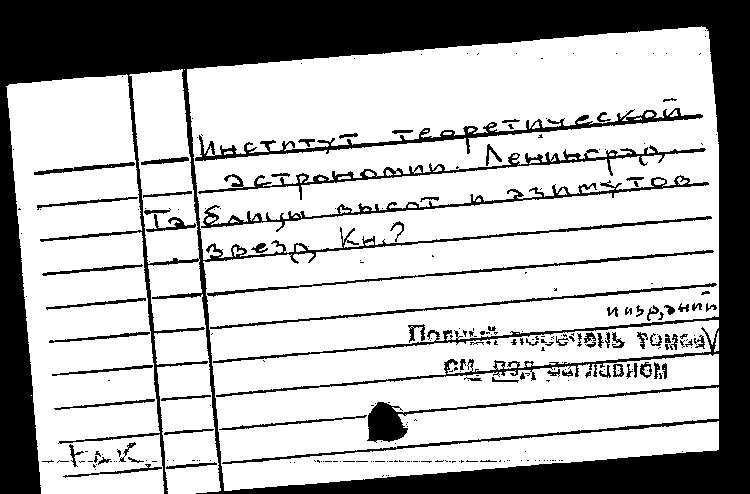 Институт теоретической
астрономии. Ленинград.
Таблицы высот и азимутов
звезд Кн.?
и изданий
Полный перечень томов V
см. под заглавием
так.